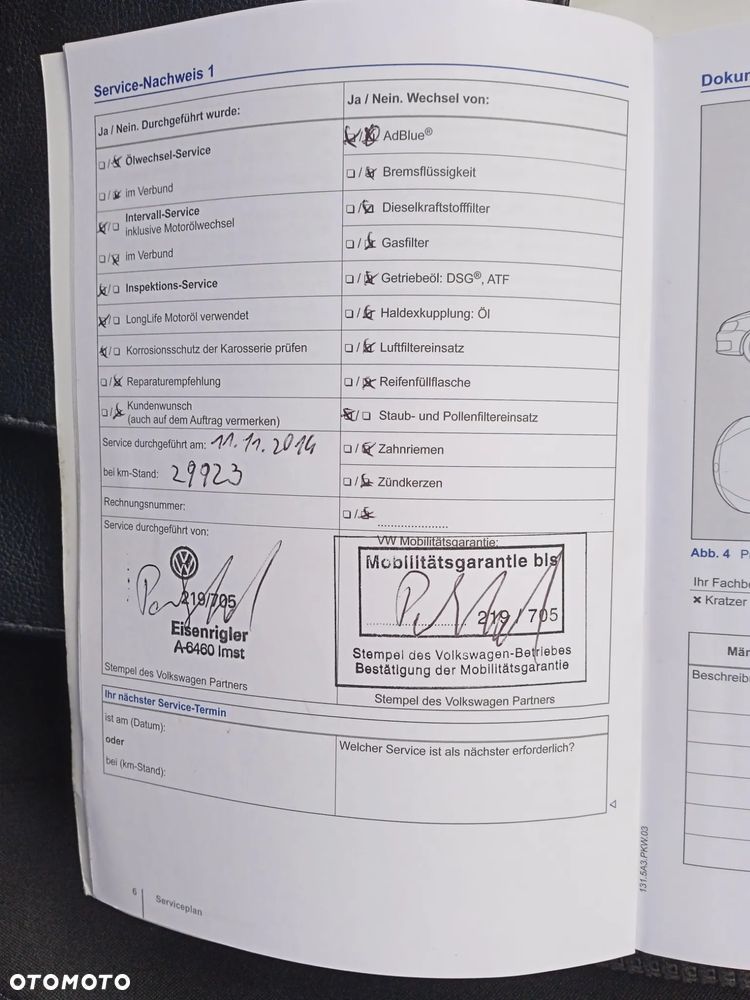 Service-Nachweis 1
Ja / Nein. Durchgeführt wurde:
Ölwechsel-Service
im Verbund
Intervall-Service
inklusive Motorölwechsel
im Verbund
Inspektions-Service
LongLife Motoröl verwendet
Korrosionsschutz der Karosserie prüfen
Reparaturempfehlung
Kundenwunsch
(auch auf dem Auftrag vermerken)
Service durchgeführt am: 11.11.2014
bei km-Stand: 29923
Rechnungsnummer:
Service durchgeführt von:
219/705
Eisenrigler
A-6460 Imst
Stempel des Volkswagen Partners
Ja / Nein. Wechsel von:
AdBlue®
Bremsflüssigkeit
Dieselkraftstofffilter
Gasfilter
Getriebeöl: DSG®, ATF
Haldexkupplung: Öl
Luftfiltereinsatz
Reifenfüllflasche
Staub- und Pollenfiltereinsatz
Zahnriemen
Zündkerzen
VW Mobilitätsgarantie:
Mobilitätsgarantie bis
219 / 705
Stempel des Volkswagen-Betriebes
Bestätigung der Mobilitätsgarantie
Stempel des Volkswagen Partners
Ihr nächster Service-Termin
ist am (Datum):
oder
bei (km-Stand):
Welcher Service ist als nächster erforderlich?
131.5A3.PKW.03
6
Serviceplan
Dokum
Abb. 4
Ihr Fachbe
× Kratzer
Män
Beschreibu
OTOMOTO